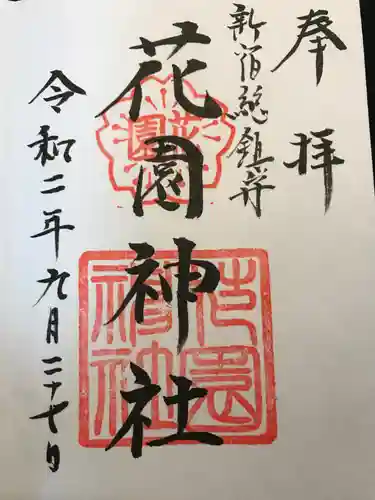 奉拝
新宿総鎮守
花園神社
花園
花園神社
令和二年九月二十七日